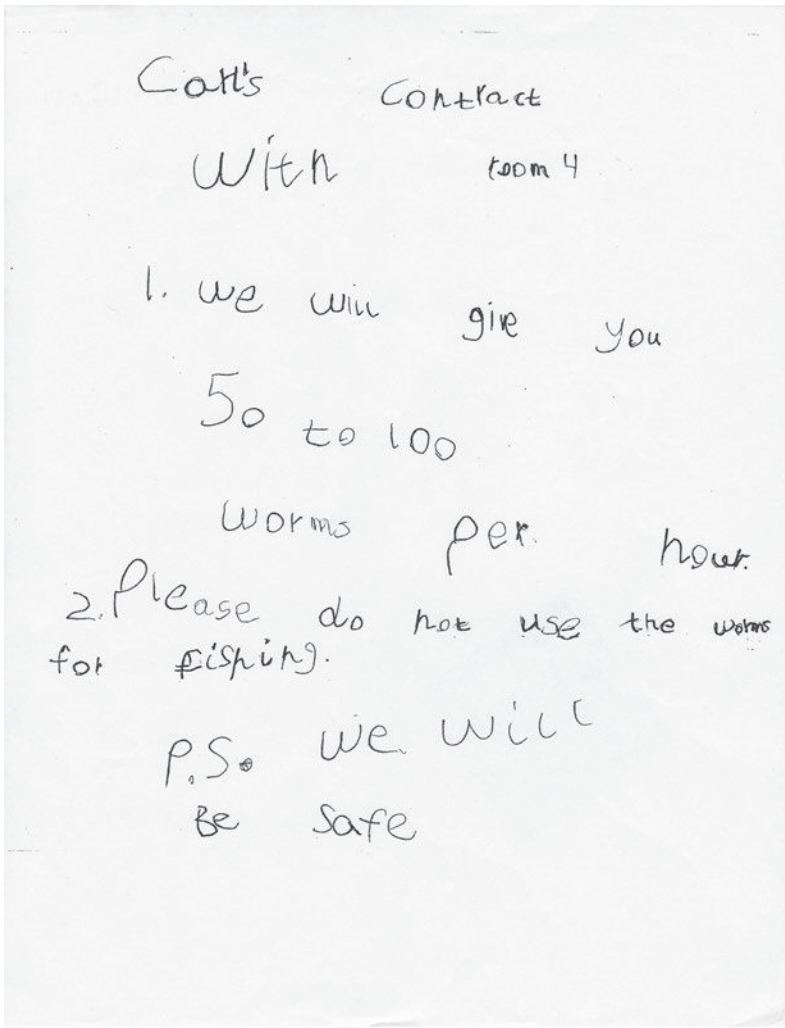 Carl's Contract
With room 4
1. we will give you
50 to 100
worms per hour.
2. Please do not use the worms
for fishing.
P.S. we will
Be safe